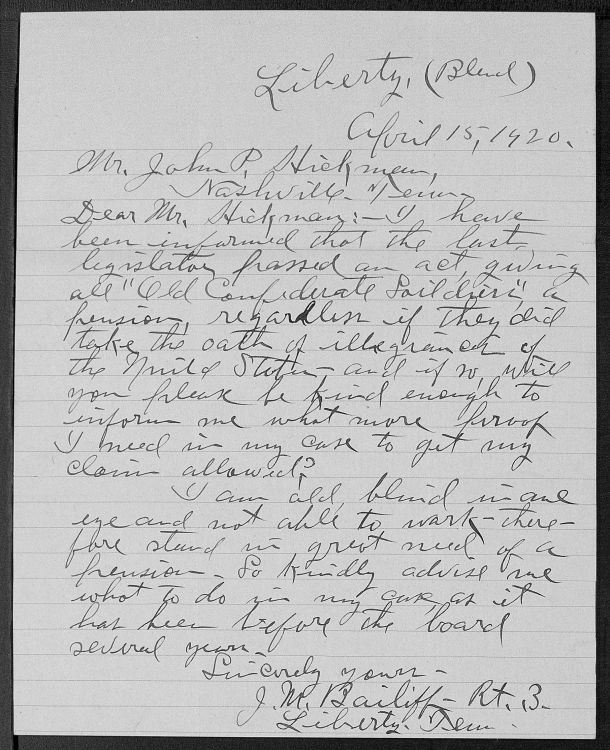 Liberty, (Blend)
April 15, 1920.
Mr. John P. Hickman,
Nashville - Tenn -
Dear Mr. Hickman: - I have
been informed that the last
legislatory passed an act, giving
all "Old Confederate Soildiers", a
pension, regardless if they did
take the oath of illegirancer of
the United States - and if so, will
you please be kind enough to
inform me what more proof
I need in my case to get my
claim allowed?
I am old, blind in one
eye and not able to work - there-
fore stand in great need of a
pension - So kindly advise me
what to do in my case, as it
has been before the board
several years -
Sincerely yours -
J. M. Bailiff - Rt. 3.
Liberty. Tenn.